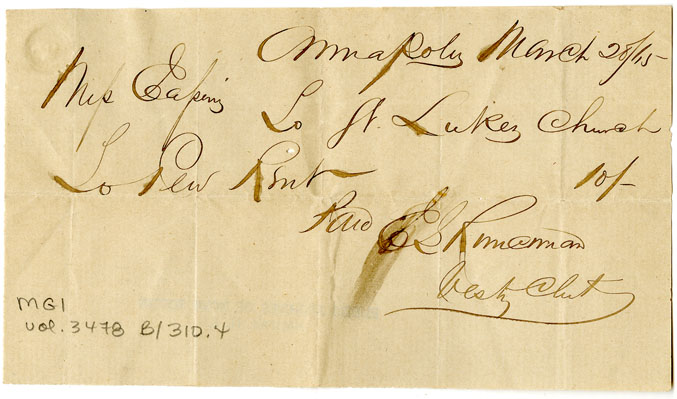 Annapolis March 28/75
Miss
To St. Lukes Church
To Pew Rent 10/-
Paid E L
Vesty Clerk
MG1
vol. 3478 B/310.4